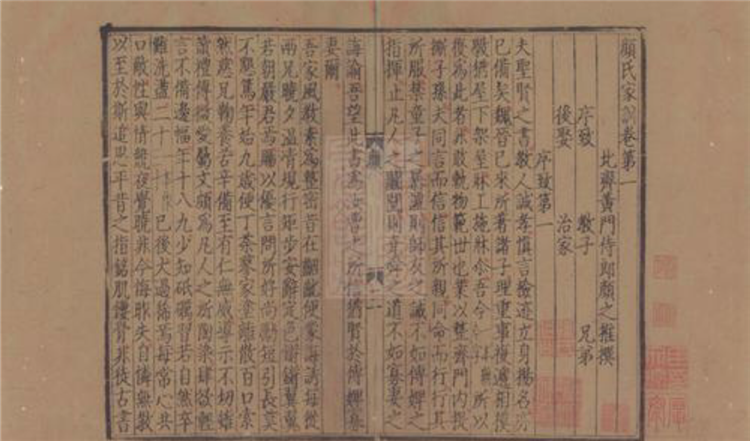 顏氏家訓卷第一
北齊黃門侍郎顏之推撰
序致 教子 兄弟
後娶 治家
序致第一
夫聖賢之書教人誠孝慎言檢迹立身揚名亦
已備矣魏晉已來所著諸子理重事複遞相
斆猶屋下架屋牀上施牀爾吾今 所以
復為此者非敢軌物範世也業以整齊門內提
撕子孫夫同言而信信其所親同命而行行其
所服禁童子之暴謔則師友之誡不如傅婢之
指揮止凡人之鬬鬩則堯舜之道不如寡妻之
誨諭吾望此書為汝曹之所信猶賢於傅婢寡
妻爾
吾家風教素為整密昔在齠齔便蒙誨誘每從
兩兄曉夕溫凊規行矩步安辭定色鏘鏘翼翼
若朝嚴君焉賜以優言問所好尚勵短引長莫
不懇篤年始九歲便丁荼蓼家塗離散百口索
然慈兄鞠養苦辛備至有仁無威導示不切雖
讀禮傳微愛屬文頗為凡人之所陶染肆欲輕
言不備邊幅年十八九少知砥礪習若自然卒
難洗盪二十 已後大過稀焉每常心共
口敵性與情競夜覺曉非今悔昨失自憐無教
以至於斯追思平昔之指銘肌鏤骨非徒古書